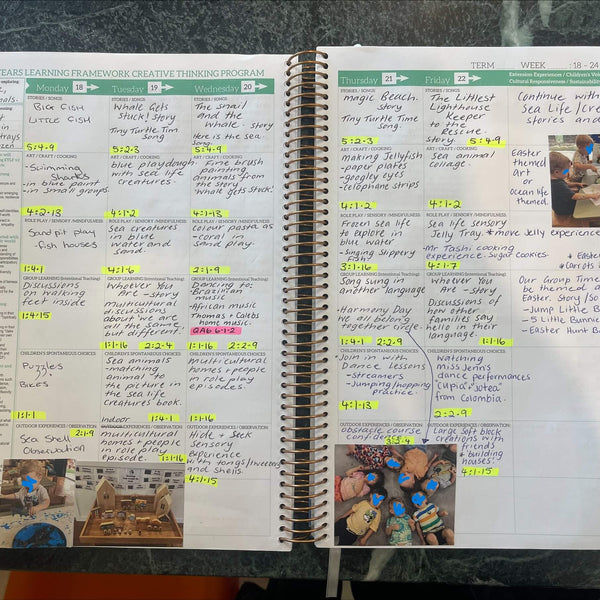 YEARS LEARNING FRAMEWORK CREATIVE THINKING PROGRAM
Monday 18
STORIES / SONGS
BIG FISH
LITTLE FISH
5:4-9
ART / CRAFT / COOKING
- Swimming
Sharks
- in blue paint
in small groups.
4:2-13
ROLE PLAY / SENSORY / MINDFULNESS
Sandpit play
- fish houses
1:4-1
GROUP LEARNING (Intentional Teaching)
Discussions
on walking
feet inside
1:4-15
CHILDREN'S SPONTANEOUS CHOICES
Puzzles
+
Bikes
1:1-1
OUTDOOR EXPERIENCES / OBSERVATION
2:1-9
Sea Shell
Observation
Tuesday 19
STORIES / SONGS
Whale Gets
Stuck! Story
Tiny Turtle Tim
Song.
5:2-3
ART / CRAFT / COOKING
blue playdough
with sea life
creatures.
4:1-2
ROLE PLAY / SENSORY / MINDFULNESS
Sea creatures
in blue
water and
sand.
4:1-6
GROUP LEARNING (Intentional Teaching)
Whoever You
Are - story
multicultural
discussions
about we are
all the same
but different.
1:1-16 2:2-4
CHILDREN'S SPONTANEOUS CHOICES
Sea animals
- matching
animal to
the picture in
the sea life
creatures book.
Indoor 1:4-1
OUTDOOR EXPERIENCES / OBSERVATION
multicultural
homes + people
in role play
episode. 1:1-16
Wednesday 20
STORIES / SONGS
The Snail
and the
Whale - Story
Here is the sea
song.
5:4-9
ART / CRAFT / COOKING
Fine brush
painting
animals from
the story
Whale gets stuck!
4:1-13
ROLE PLAY / SENSORY / MINDFULNESS
Colour pasta as
- coral in
sand play.
2:1-9
GROUP LEARNING (Intentional Teaching)
Dancing to:
Brazilian
music
African music
Thomas + Calebs
home music.
QA6 6-1-2
1:1-16 2:2-9
CHILDREN'S SPONTANEOUS CHOICES
multicultural
homes + people
in role play
episodes.
1:1-16
OUTDOOR EXPERIENCES / OBSERVATION
Hide + Seek
Sensory
Experience
with tongs/tweezers
and shells.
4:1-15
TERM WEEK :18 - 24
Thursday 21
STORIES / SONGS
magic Beach.
story
Tiny Turtle Tim
song.
5:2-3
ART / CRAFT / COOKING
Making Jellyfish
- paper plates
- googley eyes
- celophane strips
4:1-2
ROLE PLAY / SENSORY / MINDFULNESS
Frozen sea life
to explore in
blue water
- Singing Slippery
Fish.
3:1-16
GROUP LEARNING (Intentional Teaching)
Song sung in
another language
- Harmony Day
we all belong
together circle.
1:4-1 2:2-9
CHILDREN'S SPONTANEOUS CHOICES
Join in with
Dance Lessons
- streamers
- Jumping/hopping
practice.
4:1-13
OUTDOOR EXPERIENCES / OBSERVATION
obstacle course
confidence
3:3-4
Friday 22
STORIES / SONGS
The Littlest
Lighthouse
Keeper
to the
Rescue.
story. 5:4-9
ART / CRAFT / COOKING
Sea animal
collage.
4:1-2
ROLE PLAY / SENSORY / MINDFULNESS
Sea life sensory
Jelly Tray. + more Jelly experience
- Mr Tashi cooking
experience. Sugar cookies
4:1-7
GROUP LEARNING (Intentional Teaching)
Whoever You
Are - Story
Discussions of
how other
families say
hello in their
language.
1:1-16
CHILDREN'S SPONTANEOUS CHOICES
Watching
miss Jenni's
dance performances
"Cupia" + "Jotea"
from Colombia.
2:2-9
OUTDOOR EXPERIENCES / OBSERVATION
Large soft block
creations with
friends
+ building
houses!
4:1-15
Extension Experiences / Children's Voi
Cultural Responsiveness / Sustainability
Continue with
Sea Life/Cre
stories and
Easter
themed
Art
or
ocean life
themed.
+ Easter
Carrots
Our Group Time
be themed a
Easter. Story/So
- Jump Little B
- 5 Little Bunnie
- Easter Hunt B